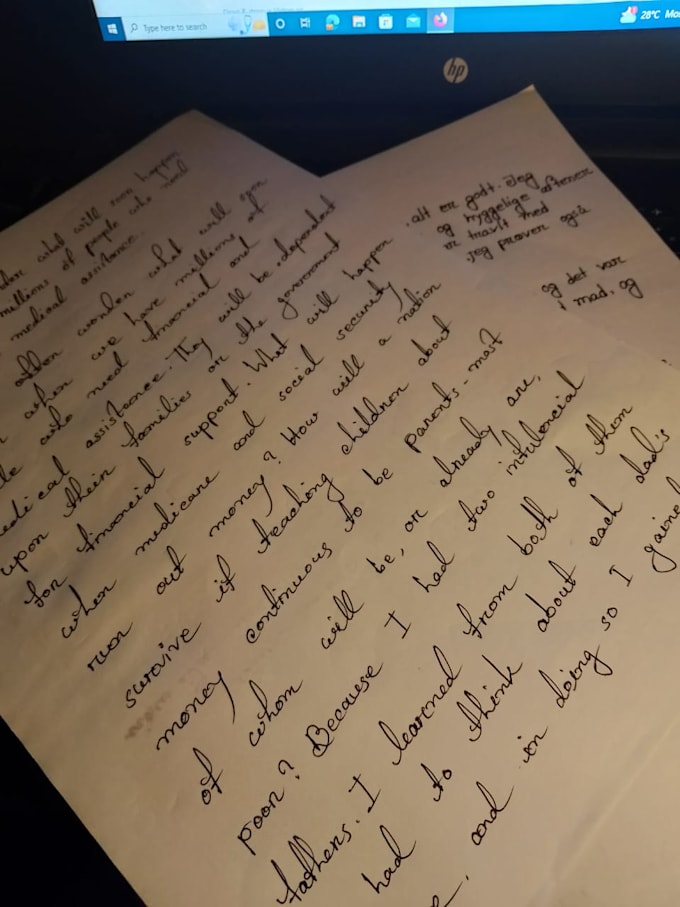 Type here to search
28°C Mos
hp
what will soon happen
millions of people who need
medical assistance.
often wonder what will soon
when we have millions of
who need financial and
medical assistance. They will be dependent
upon their families or the government
for financial support. What will happen
when medicare and social security
run out money? How will a nation
survive if teaching children about
money continuous to be parents-most
of whom will be, or already are,
poor? Because I had two infulencial
fathers. I learned from both of them
had to think about each dad's
and in doing so I gained
alt er godt. Jeg
og hyggelige aftener
er travlt med
jeg prøver også
og det var
i mad, og